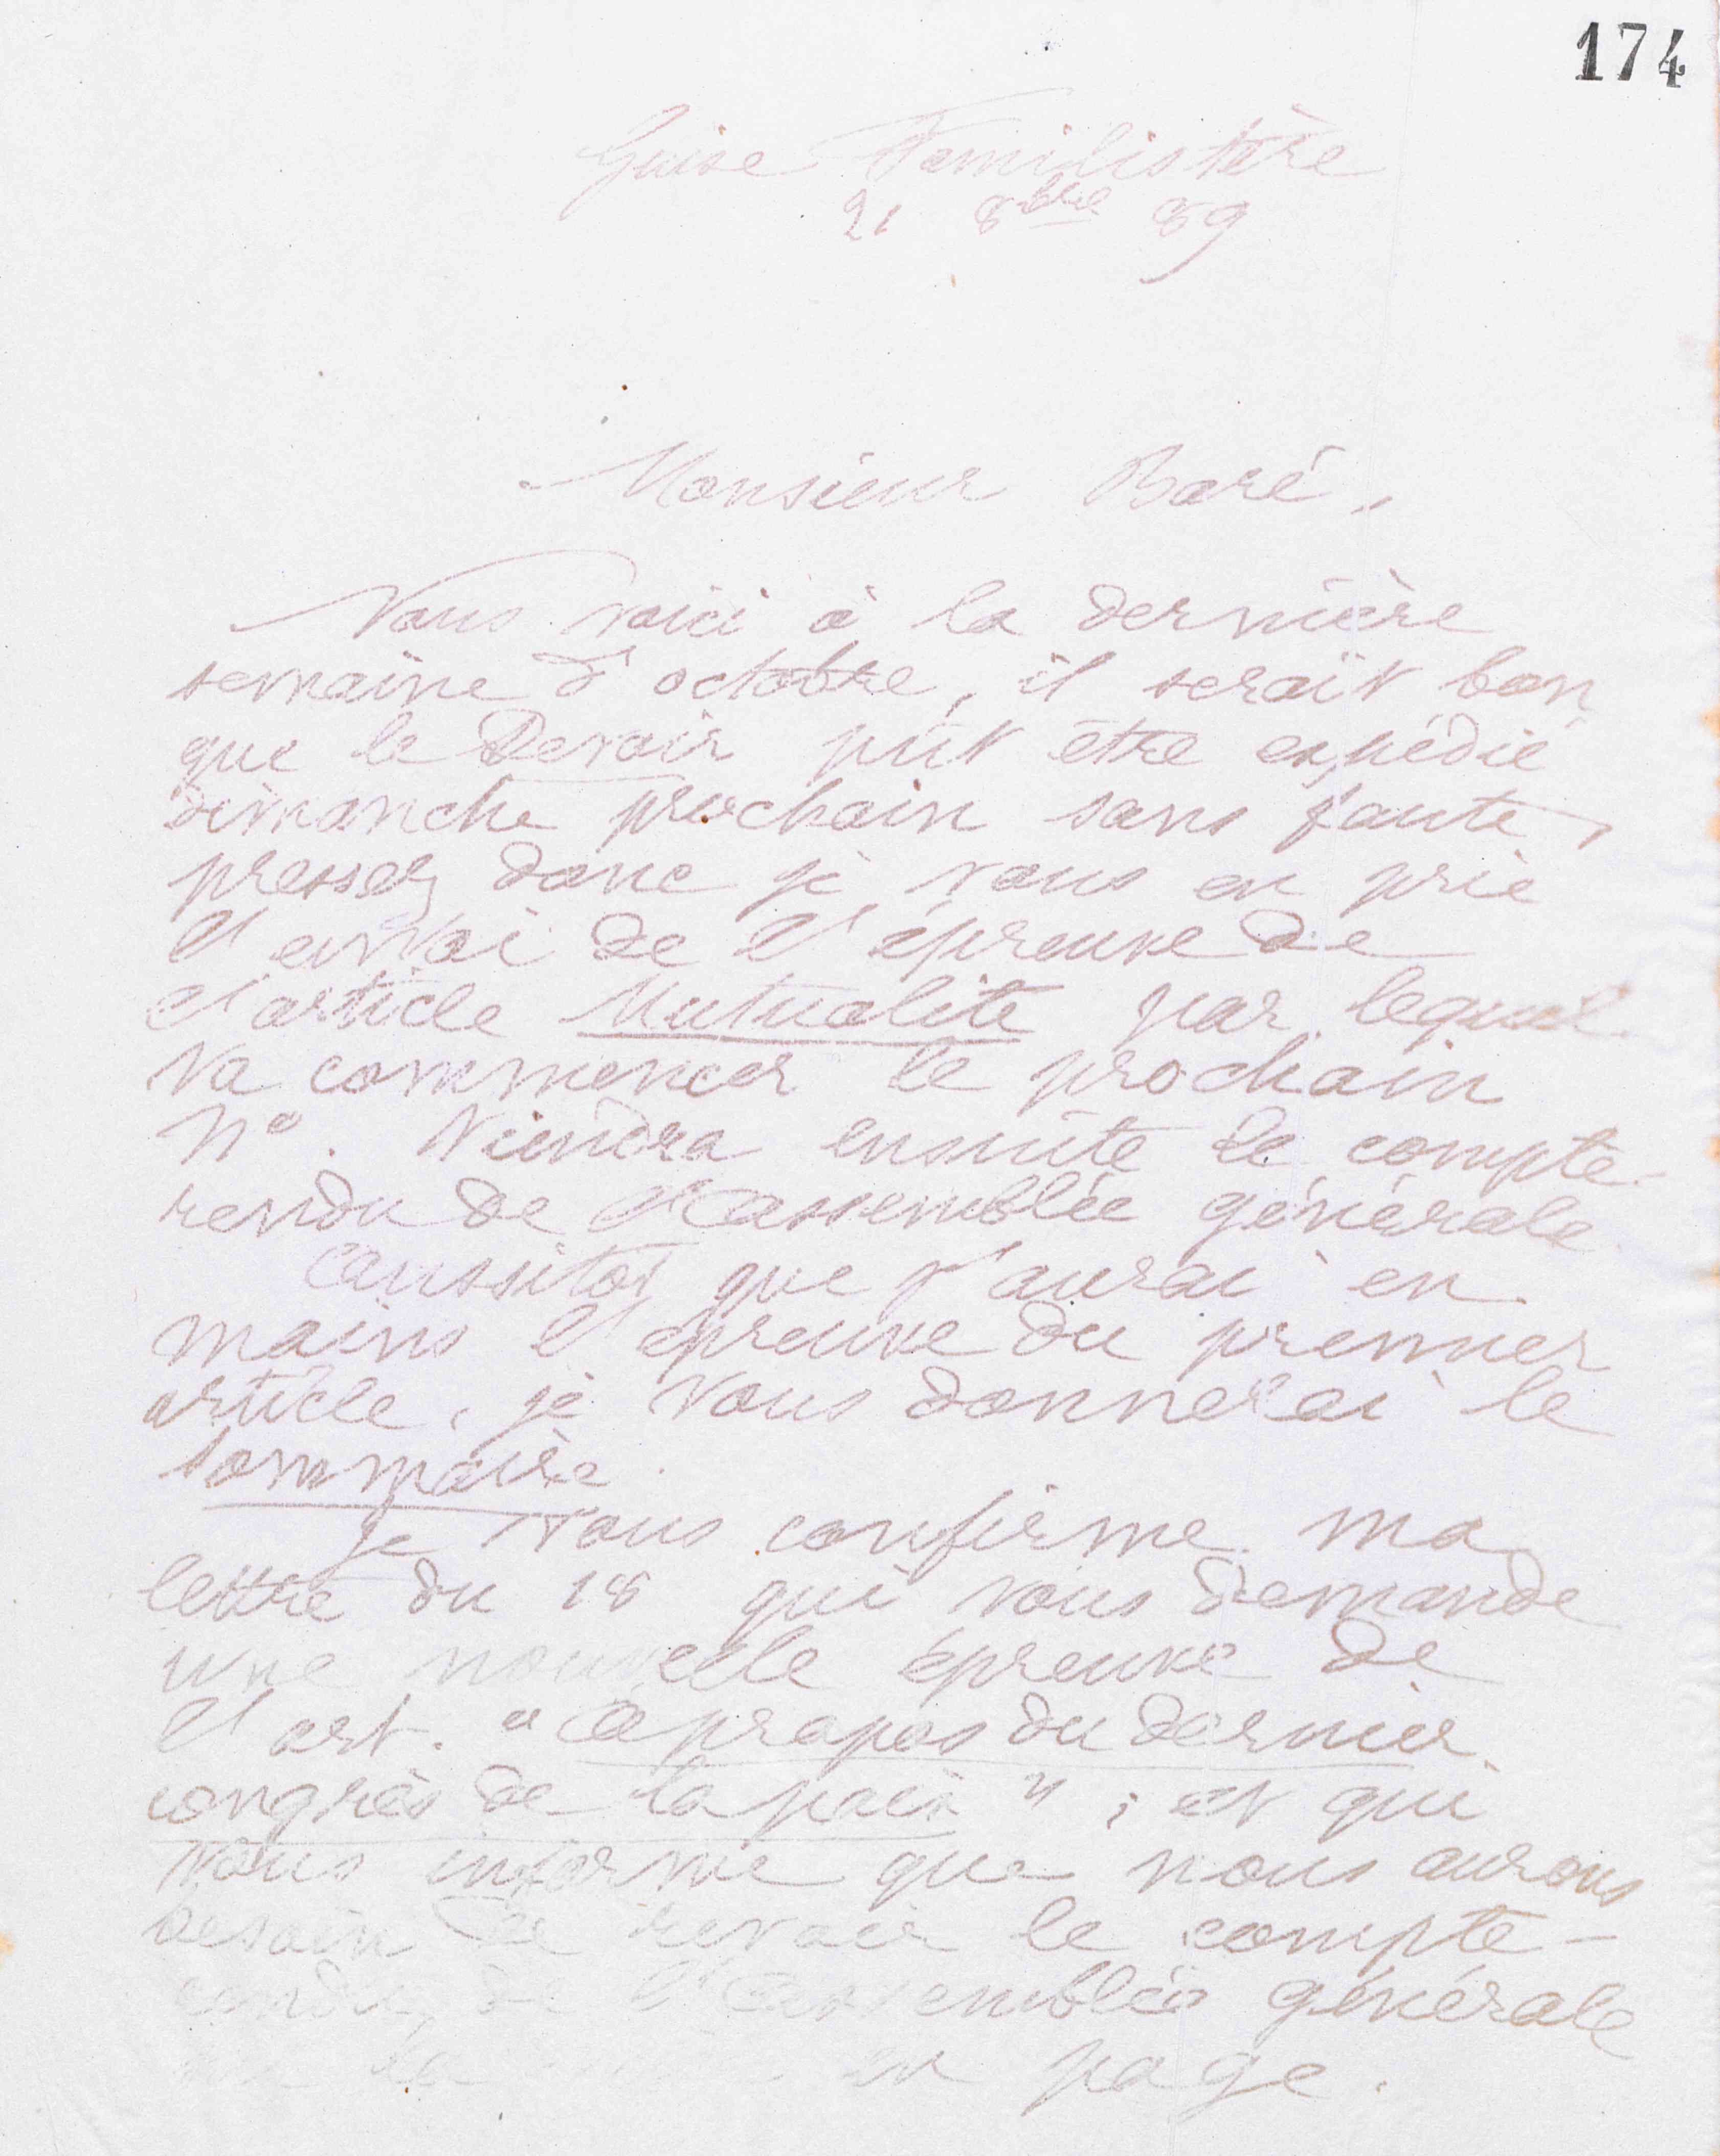 174
Guise Familistère
21 8bre 89
Monsieur Baré,
Nous voici à la dernière
semaine d'octobre, il serait bon
que le Devoir pût être expédié
dimanche prochain sans faute,
pressez donc je vous en prie
l'envoi de l'épreuve de
l'article Mutualité par lequel
va commencer le prochain
N°. Viendra ensuite le compte-
rendu de l'Assemblée générale
Aussitôt que j'aurai en
mains l'épreuve du premier
article, je vous donnerai le
sommaire.
Je vous confirme ma
lettre du 18 qui vous demande
une nouvelle épreuve de
l'art. "A propos du dernier
congrès de la paix" ; et qui
vous informe que nous aurons
besoin de revoir le compte-
rendu de l'Assemblée générale
en page.